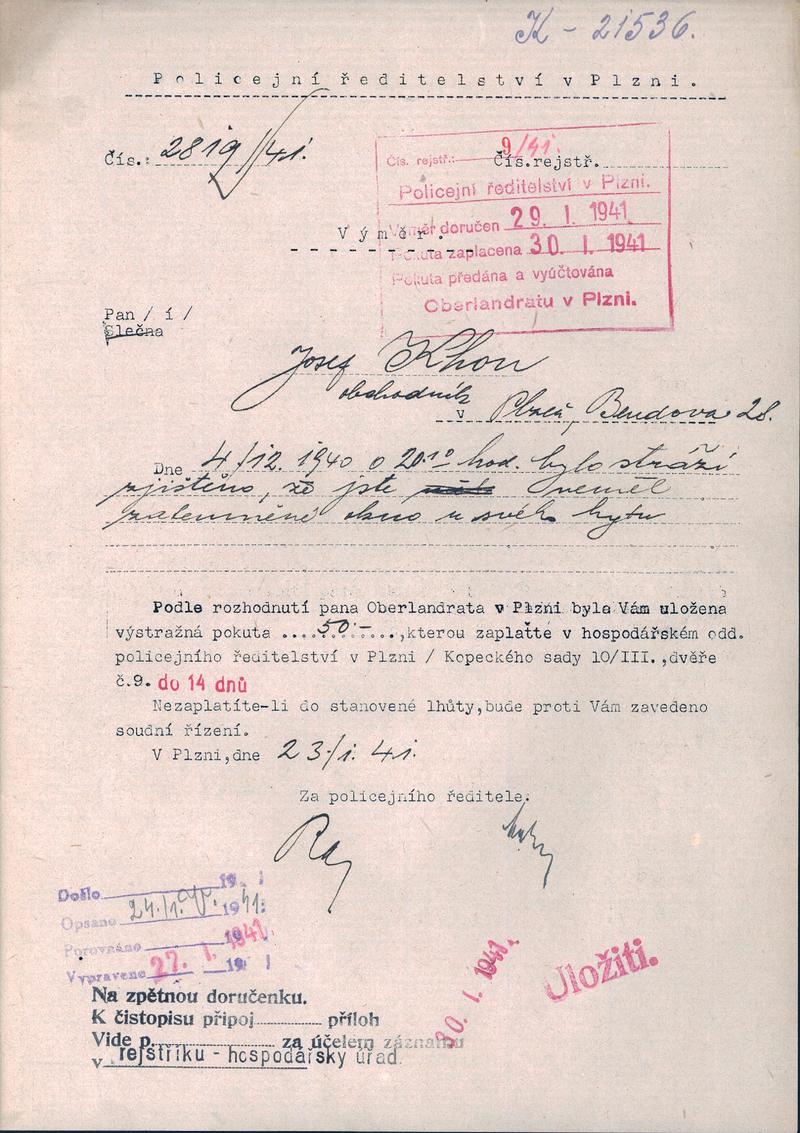 K - 21536.
Policejní ředitelství v Plzni.
Čís.: 2819/41.
Čís. rejstř.: 9/41.
Čís.rejstř.
Policejní ředitelství v Plzni.
Výměr doručen 29. I. 1941
Výměr.
Pokuta zaplacena 30. I. 1941
Pokuta předána a vyúčtována
Oberlandratu v Plzni.
Pan / í /
Slečna
Josef Khon
obchodník
v Plzeň, Bendova 28.
Dne 4/12. 1940 o 2010 hod. bylo stráží
zjištěno, že jste neměl
zatemněné okno u svého bytu
Podle rozhodnutí pana Oberlandrata v Plzni byla Vám uložena
výstražná pokuta ....50.-....,kterou zaplaťte v hospodářském odd.
policejního ředitelství v Plzni / Kopeckého sady 10/III.,dvéře
č.9. do 14 dnů
Nezaplatíte-li do stanovené lhůty,bude proti Vám zavedeno
soudní řízení.
V Plzni,dne 23/I. 41.
Za policejního ředitele:
Došlo 19
Opsáno 24./1. 1941.
Porovnáno 19
Vypraveno 27. I. 1941. 19
Na zpětnou doručenku.
K čistopisu připoj příloh
Vide p. za účelem záznamu
v rejstříku - hospodářský úřad.
30. I. 1941.
Uložiti.